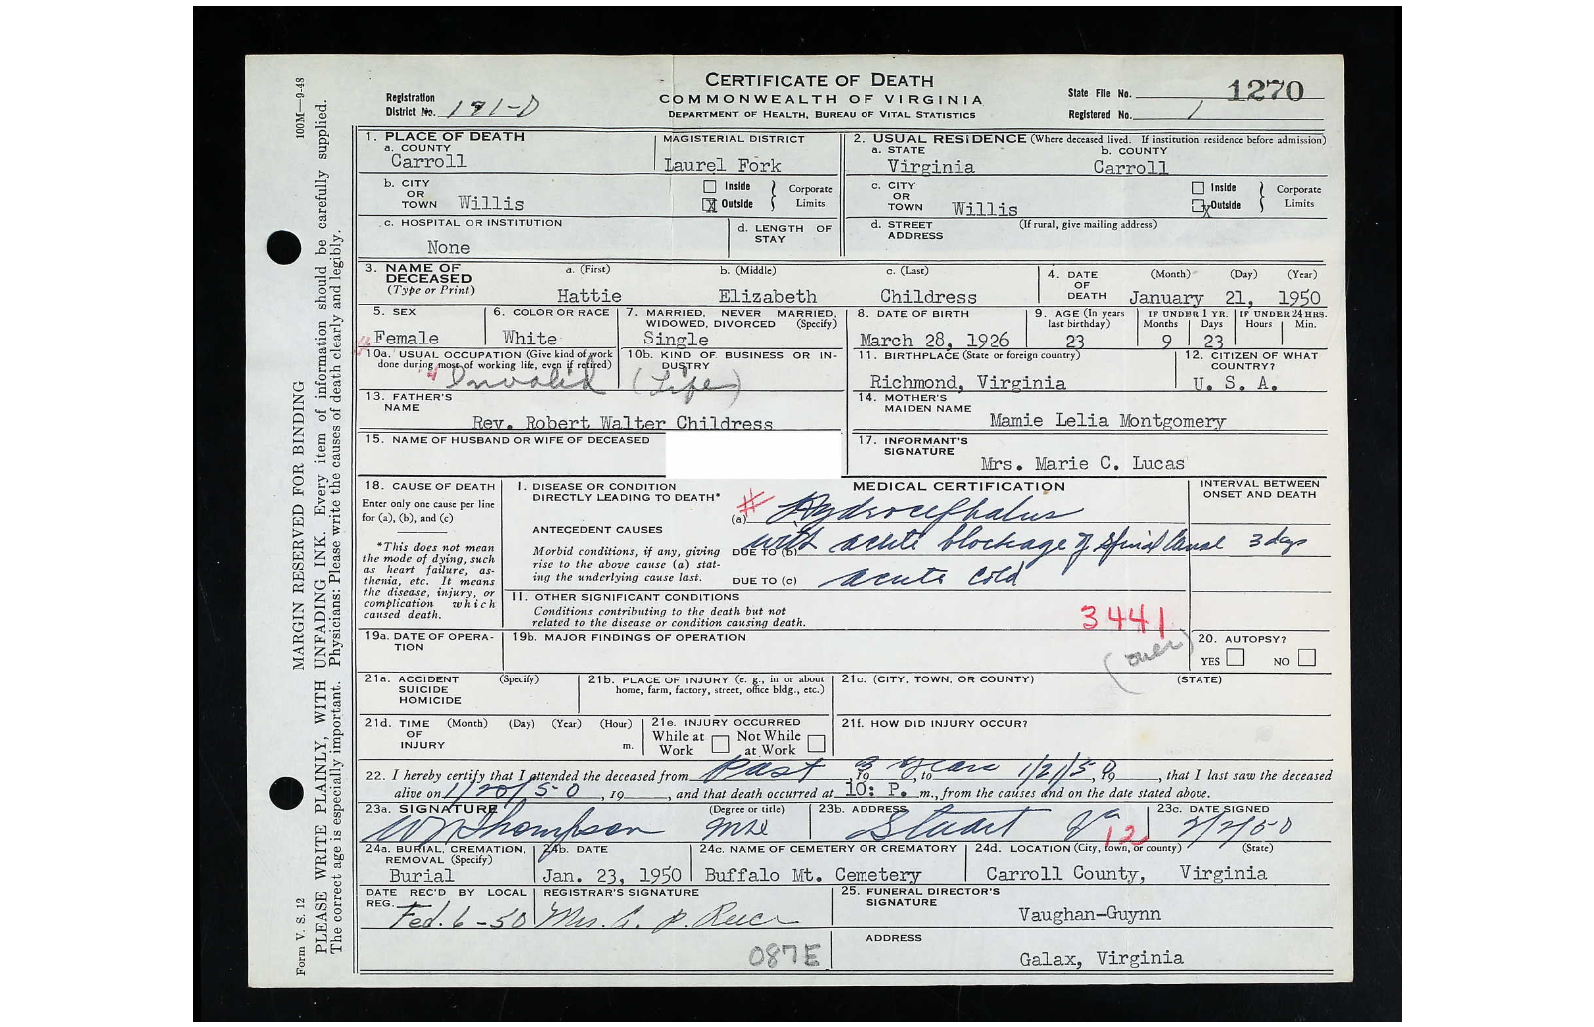 CERTIFICATE OF DEATH
COMMONWEALTH OF VIRGINIA
DEPARTMENT OF HEALTH, BUREAU OF VITAL STATISTICS
Registration District No. 191-D
State File No. 1270
Registered No. 1
100M—9-48
MARGIN RESERVED FOR BINDING
PLEASE WRITE PLAINLY, WITH UNFADING INK. Every item of information should be carefully supplied.
The correct age is especially important. Physicians: Please write the causes of death clearly and legibly.
Form V. S. 12
1. PLACE OF DEATH
a. COUNTY
Carroll
MAGISTERIAL DISTRICT
Laurel Fork
2. USUAL RESIDENCE (Where deceased lived. If institution residence before admission)
a. STATE
Virginia
b. COUNTY
Carroll
b. CITY OR TOWN Willis
Inside
Outside X
Corporate Limits
c. CITY OR TOWN Willis
Inside
Outside X
Corporate Limits
c. HOSPITAL OR INSTITUTION
None
d. LENGTH OF STAY
d. STREET ADDRESS
(If rural, give mailing address)
3. NAME OF DECEASED
(Type or Print)
a. (First)
Hattie
b. (Middle)
Elizabeth
c. (Last)
Childress
4. DATE OF DEATH
(Month) (Day) (Year)
January 21, 1950
5. SEX
Female
6. COLOR OR RACE
White
7. MARRIED, NEVER MARRIED, WIDOWED, DIVORCED (Specify)
Single
8. DATE OF BIRTH
March 28, 1926
9. AGE (In years last birthday)
23
IF UNDER 1 YR.
Months Days
9 23
IF UNDER 24 HRS.
Hours Min.
10a. USUAL OCCUPATION (Give kind of work done during most of working life, even if retired)
Invalid
10b. KIND OF BUSINESS OR INDUSTRY
(Life)
11. BIRTHPLACE (State or foreign country)
Richmond, Virginia
12. CITIZEN OF WHAT COUNTRY?
U. S. A.
13. FATHER'S NAME
Rev. Robert Walter Childress
14. MOTHER'S MAIDEN NAME
Mamie Lelia Montgomery
15. NAME OF HUSBAND OR WIFE OF DECEASED
17. INFORMANT'S SIGNATURE
Mrs. Marie C. Lucas
18. CAUSE OF DEATH
Enter only one cause per line for (a), (b), and (c)
*This does not mean the mode of dying, such as heart failure, asthenia, etc. It means the disease, injury, or complication which caused death.
I. DISEASE OR CONDITION DIRECTLY LEADING TO DEATH*
MEDICAL CERTIFICATION
INTERVAL BETWEEN ONSET AND DEATH
(a) # Hydrocephalus
ANTECEDENT CAUSES
Morbid conditions, if any, giving rise to the above cause (a) stating the underlying cause last.
DUE TO (b) with acute blockage of spinal canal 3 days
DUE TO (c) acute cold
II. OTHER SIGNIFICANT CONDITIONS
Conditions contributing to the death but not related to the disease or condition causing death.
3441
(over)
19a. DATE OF OPERATION
19b. MAJOR FINDINGS OF OPERATION
20. AUTOPSY?
YES NO
21a. ACCIDENT SUICIDE HOMICIDE
(Specify)
21b. PLACE OF INJURY (e. g., in or about home, farm, factory, street, office bldg., etc.)
21c. (CITY, TOWN, OR COUNTY) (STATE)
21d. TIME OF INJURY
(Month) (Day) (Year) (Hour)
m.
21e. INJURY OCCURRED
While at Work
Not While at Work
21f. HOW DID INJURY OCCUR?
22. I hereby certify that I attended the deceased from Past 3 years, to 1/21/50, 19, that I last saw the deceased
alive on 1/20/50, 19, and that death occurred at 10: P. m., from the causes and on the date stated above.
23a. SIGNATURE
Thompson
(Degree or title)
MD
23b. ADDRESS
Stuart Va
12
23c. DATE SIGNED
2/2/50
24a. BURIAL, CREMATION, REMOVAL (Specify)
Burial
24b. DATE
Jan. 23, 1950
24c. NAME OF CEMETERY OR CREMATORY
Buffalo Mt. Cemetery
24d. LOCATION (City, town, or county) (State)
Carroll County, Virginia
DATE REC'D BY LOCAL REG.
Feb. 6-50
REGISTRAR'S SIGNATURE
Mrs.
25. FUNERAL DIRECTOR'S SIGNATURE
Vaughan-Guynn
087E
ADDRESS
Galax, Virginia